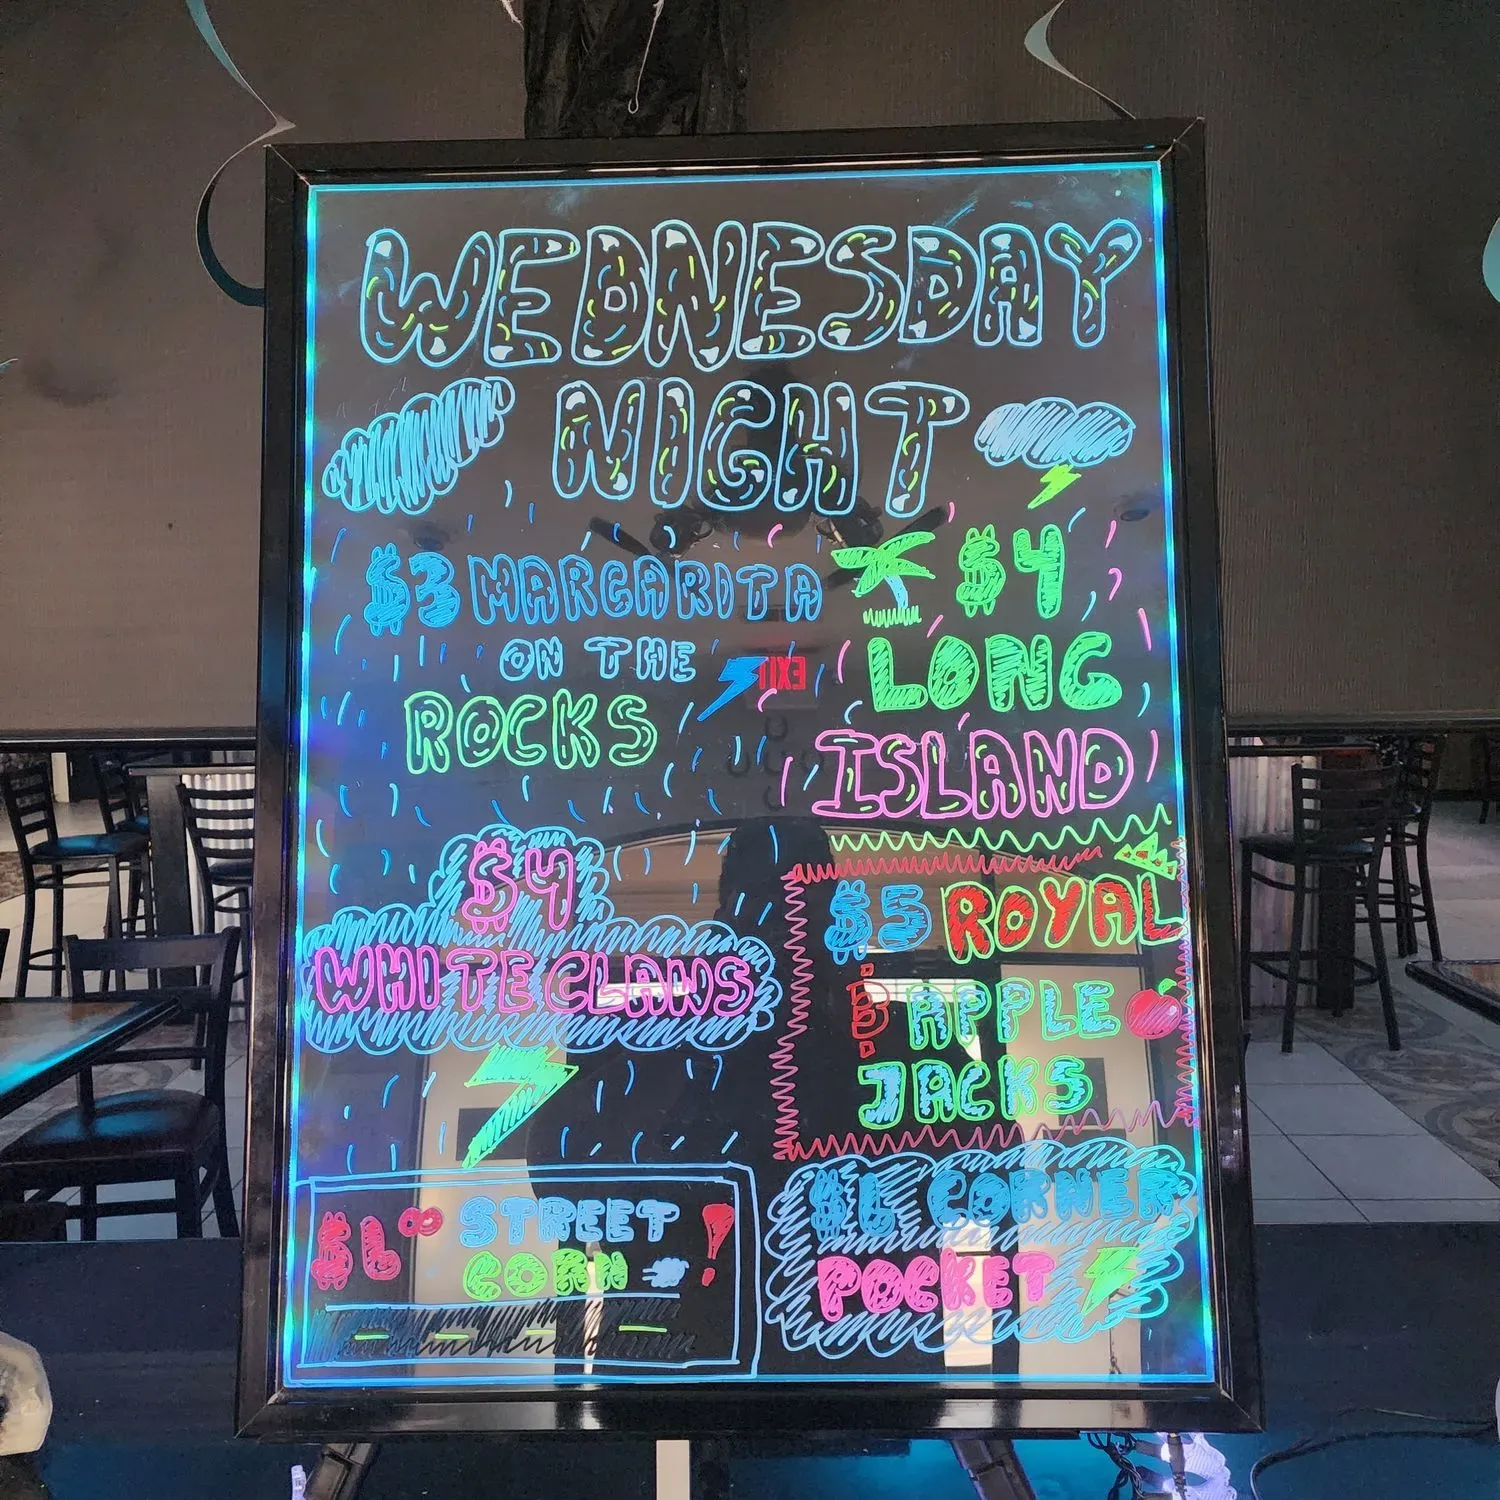 WEDNESDAY
NIGHT
$3 MARGARITA
ON THE
ROCKS
$4
LONG
ISLAND
EXIT
$4
WHITE CLAWS
$5 ROYAL
APPLE
JACKS
STREET
CORN !
CORNER
POCKET